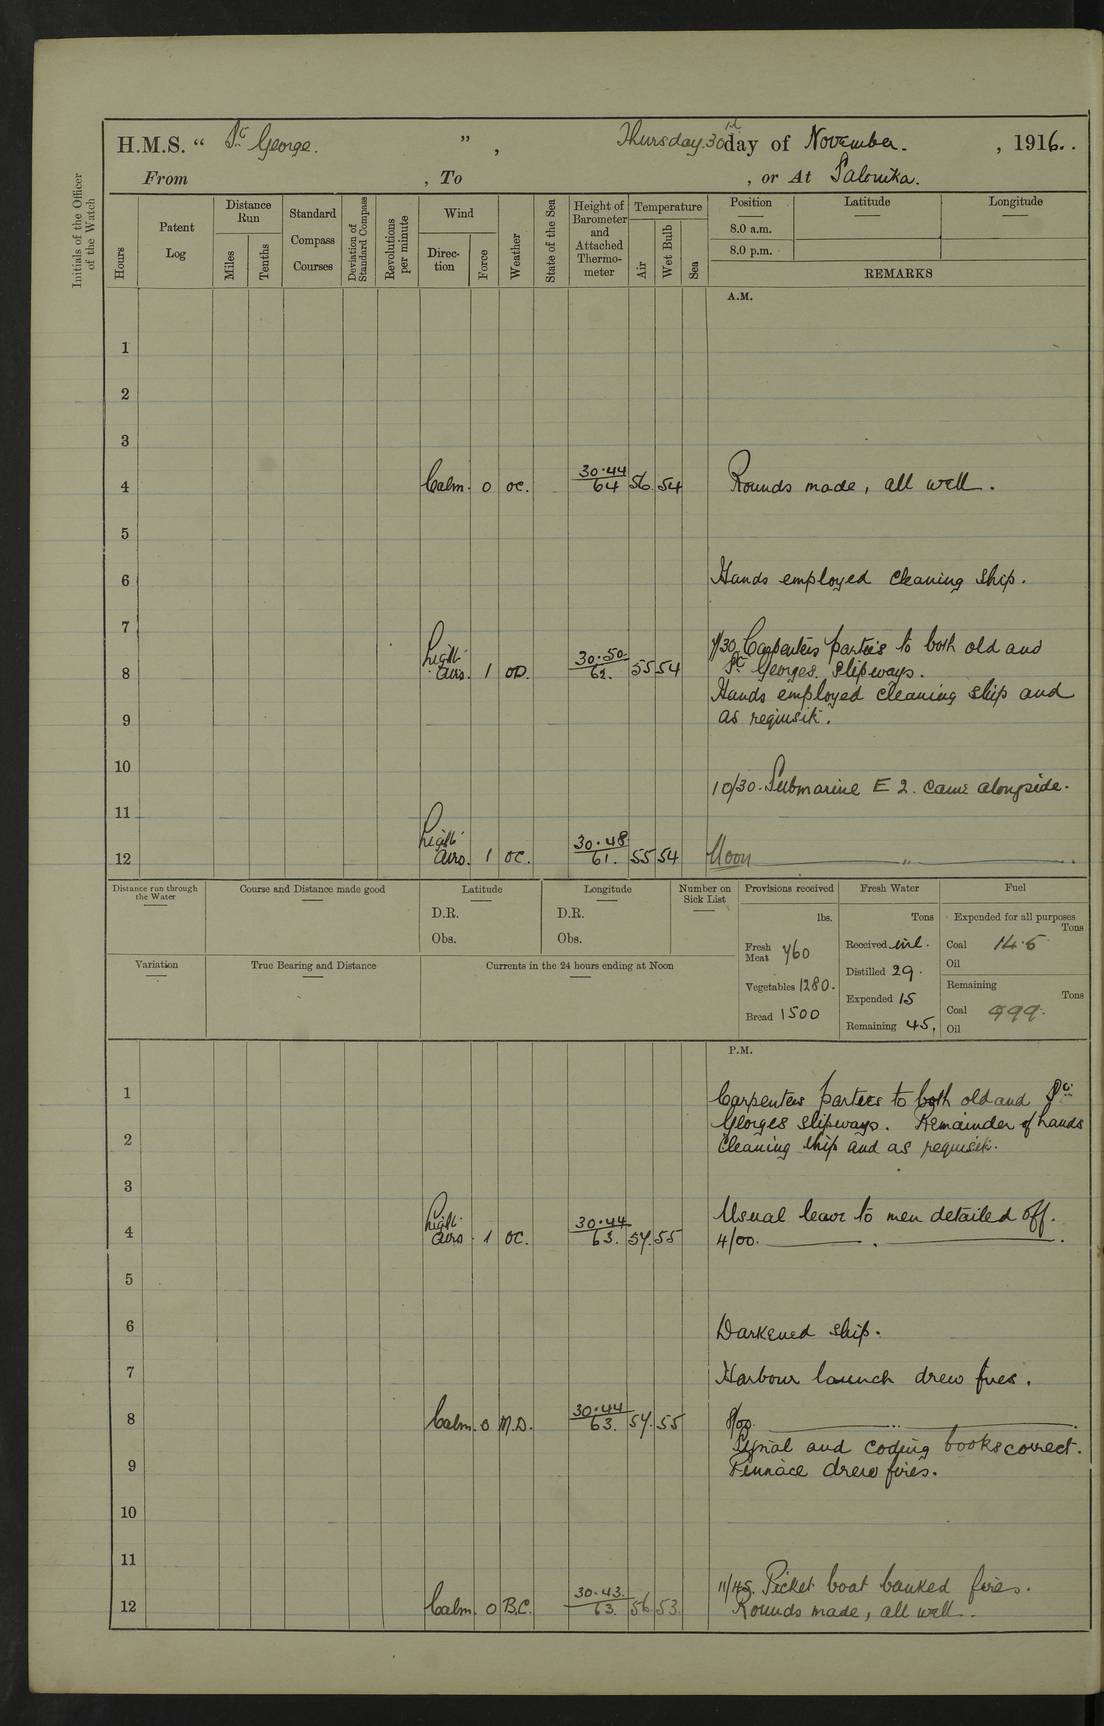 Initials of the Officer of the Watch
H.M.S. “ St. George. ” , Thursday. 30th day of November. , 1916..
From , To , or At Salonika.
Hours Patent Log Distance Run Miles Tenths Standard Compass Courses Deviation of Standard Compass Revolutions per minute Wind Direc-tion Force Weather State of the Sea Height of Barometer and Attached Thermo-meter Temperature Air Wet Bulb Sea Position 8.0 a.m. 8.0 p.m. Latitude Longitude
REMARKS
A.M.
1
2
3
4 Calm. 0 oc. 30.44/64 56 54 Rounds made, all well.
5
6 Hands employed cleaning ship.
7
7/30 Carpenters parties to both old and
8 Light airs. 1 OD. 30.50/62. 55 54 St. Georges. slipways.
Hands employed cleaning ship and
9 as requisite.
10
10/30. Submarine E 2. came alongside.
11
12 Light airs. 1 oc. 30.48/61. 55 54 Noon „ .
Distance run through the Water Course and Distance made good Latitude D.R. Obs. Longitude D.R. Obs. Number on Sick List
Provisions received lbs. Fresh Meat 760 Vegetables 1280. Bread 1500
Fresh Water Tons Received nil. Distilled 29. Expended 15 Remaining 45.
Fuel Expended for all purposes Tons Coal 14.5 Oil Remaining Tons Coal 999. Oil
Variation True Bearing and Distance Currents in the 24 hours ending at Noon
P.M.
1 Carpenters parties to both old and St.
Georges slipways. Remainder of hands
2 cleaning ship and as requisite.
3
Usual leave to men detailed off.
4 Light airs. 1 OC. 30.44/63. 57. 55 4/00.
5
6 Darkened ship.
7 Harbour launch drew fires.
8 Calm. 0 M.D. 30.44/63. 57. 55 8/00.
Signal and coding books correct.
9 Pinnace drew fires.
10
11
11/45. Picket boat banked fires.
12 Calm. 0 B.C. 30.43./63. 56 53. Rounds made, all well..